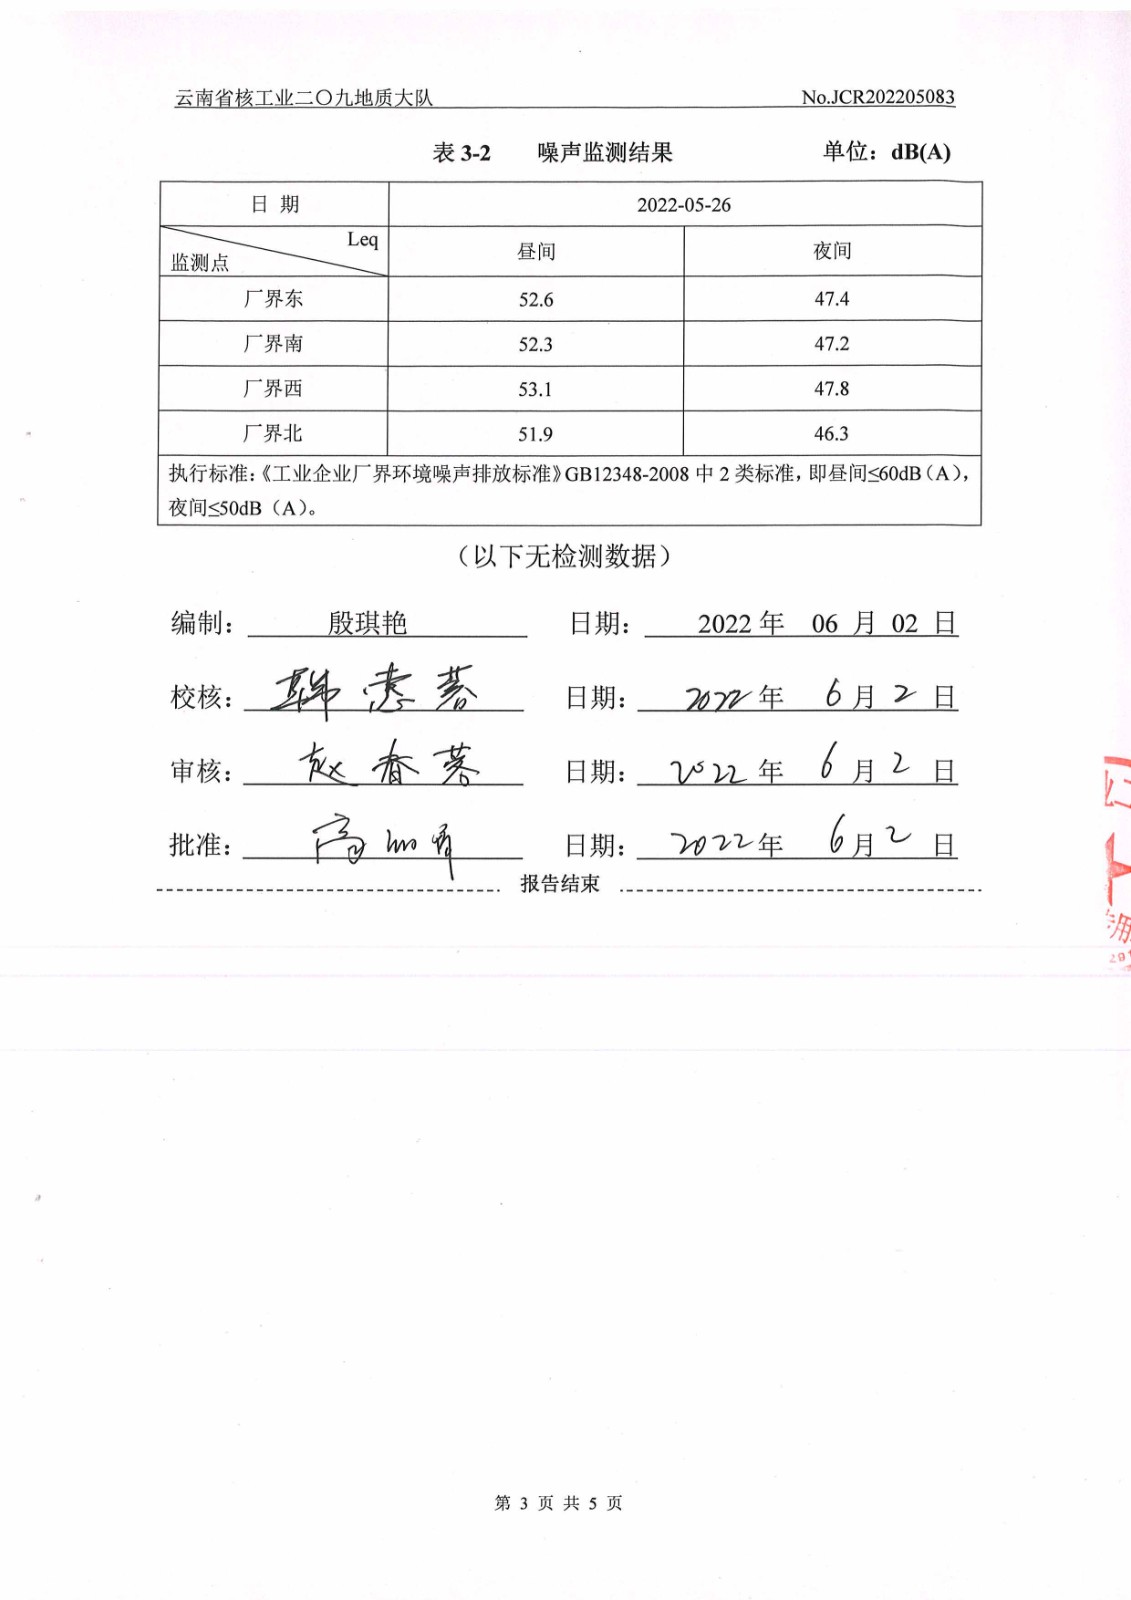 云南省核工业二〇九地质大队 No.JCR202205083
表 3-2 噪声监测结果 单位：dB(A)
日 期 2022-05-26
Leq
监测点 昼间 夜间
厂界东 52.6 47.4
厂界南 52.3 47.2
厂界西 53.1 47.8
厂界北 51.9 46.3
执行标准：《工业企业厂界环境噪声排放标准》GB12348-2008 中 2 类标准，即昼间≤60dB（A），
夜间≤50dB（A）。
（以下无检测数据）
编制： 殷琪艳 日期： 2022 年 06 月 02 日
校核： 韩惠蓉 日期： 2022 年 6 月 2 日
审核： 赵春蓉 日期： 2022 年 6 月 2 日
批准： 高 日期： 2022 年 6 月 2 日
报告结束
专用
第 3 页 共 5 页